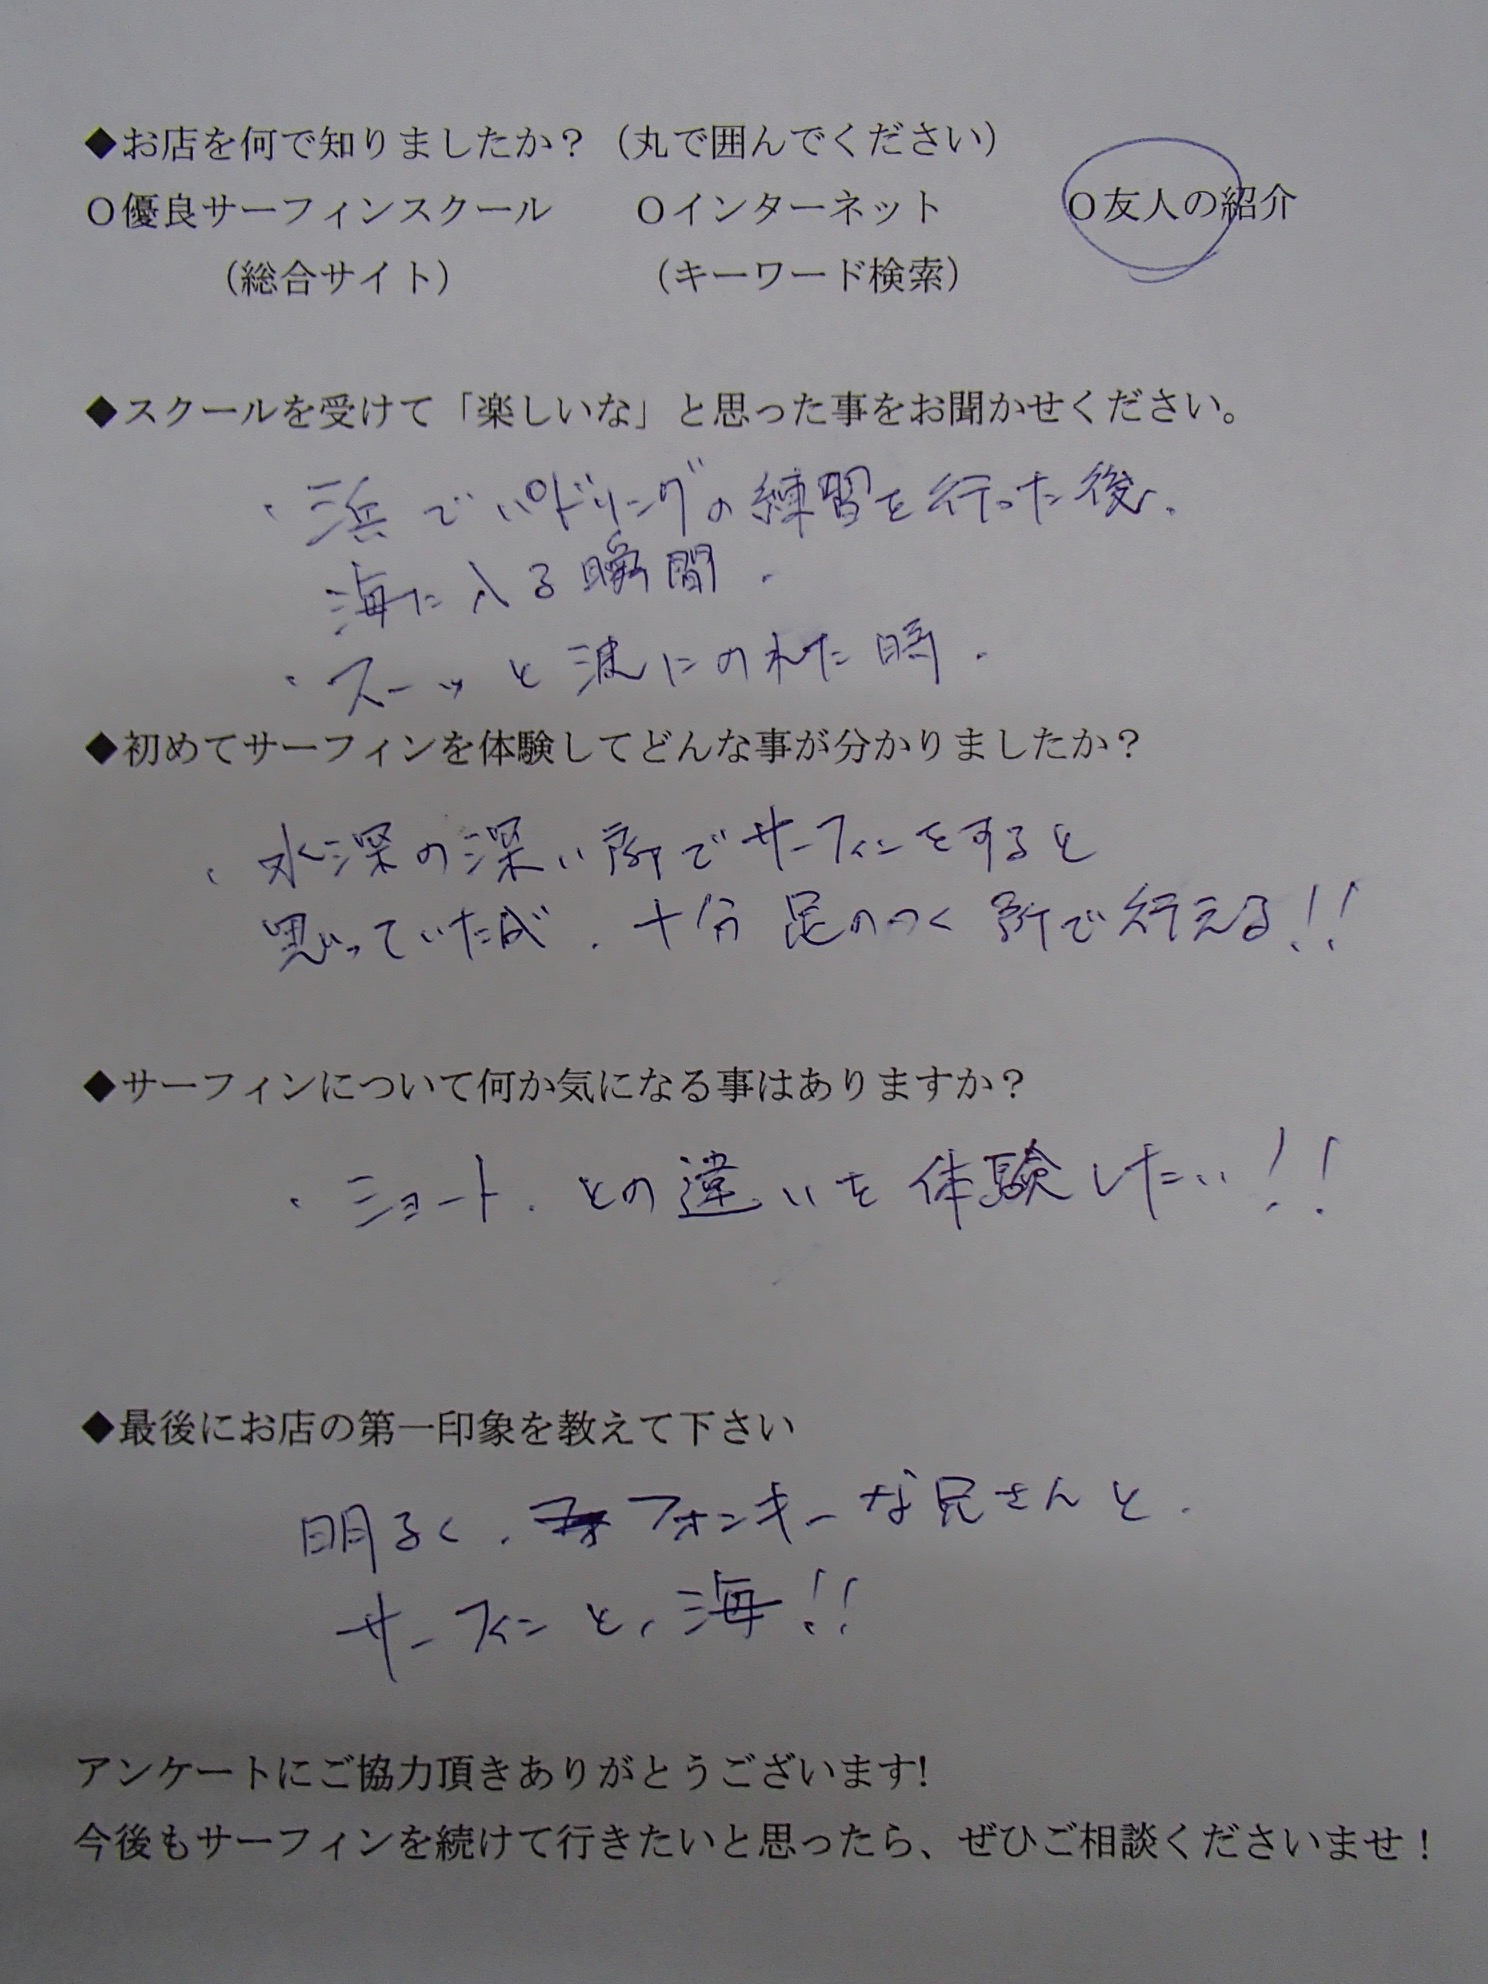 ◆お店を何で知りましたか？（丸で囲んでください）
○優良サーフィンスクール ○インターネット ○友人の紹介
（総合サイト） （キーワード検索）
◆スクールを受けて「楽しいな」と思った事をお聞かせください。
・浜でパドリングの練習を行った後、
海に入る瞬間．
・スーッと波にのれた時．
◆初めてサーフィンを体験してどんな事が分かりましたか？
・水深の深い所でサーフィンをすると
思っていたが、十分足のつく所で行える!!
◆サーフィンについて何か気になる事はありますか？
・ショート．との違いを体験したい!!
◆最後にお店の第一印象を教えて下さい
明るく、フォンキーな兄さんと、
サーフィンと、海!!
アンケートにご協力頂きありがとうございます!
今後もサーフィンを続けて行きたいと思ったら、ぜひご相談くださいませ！